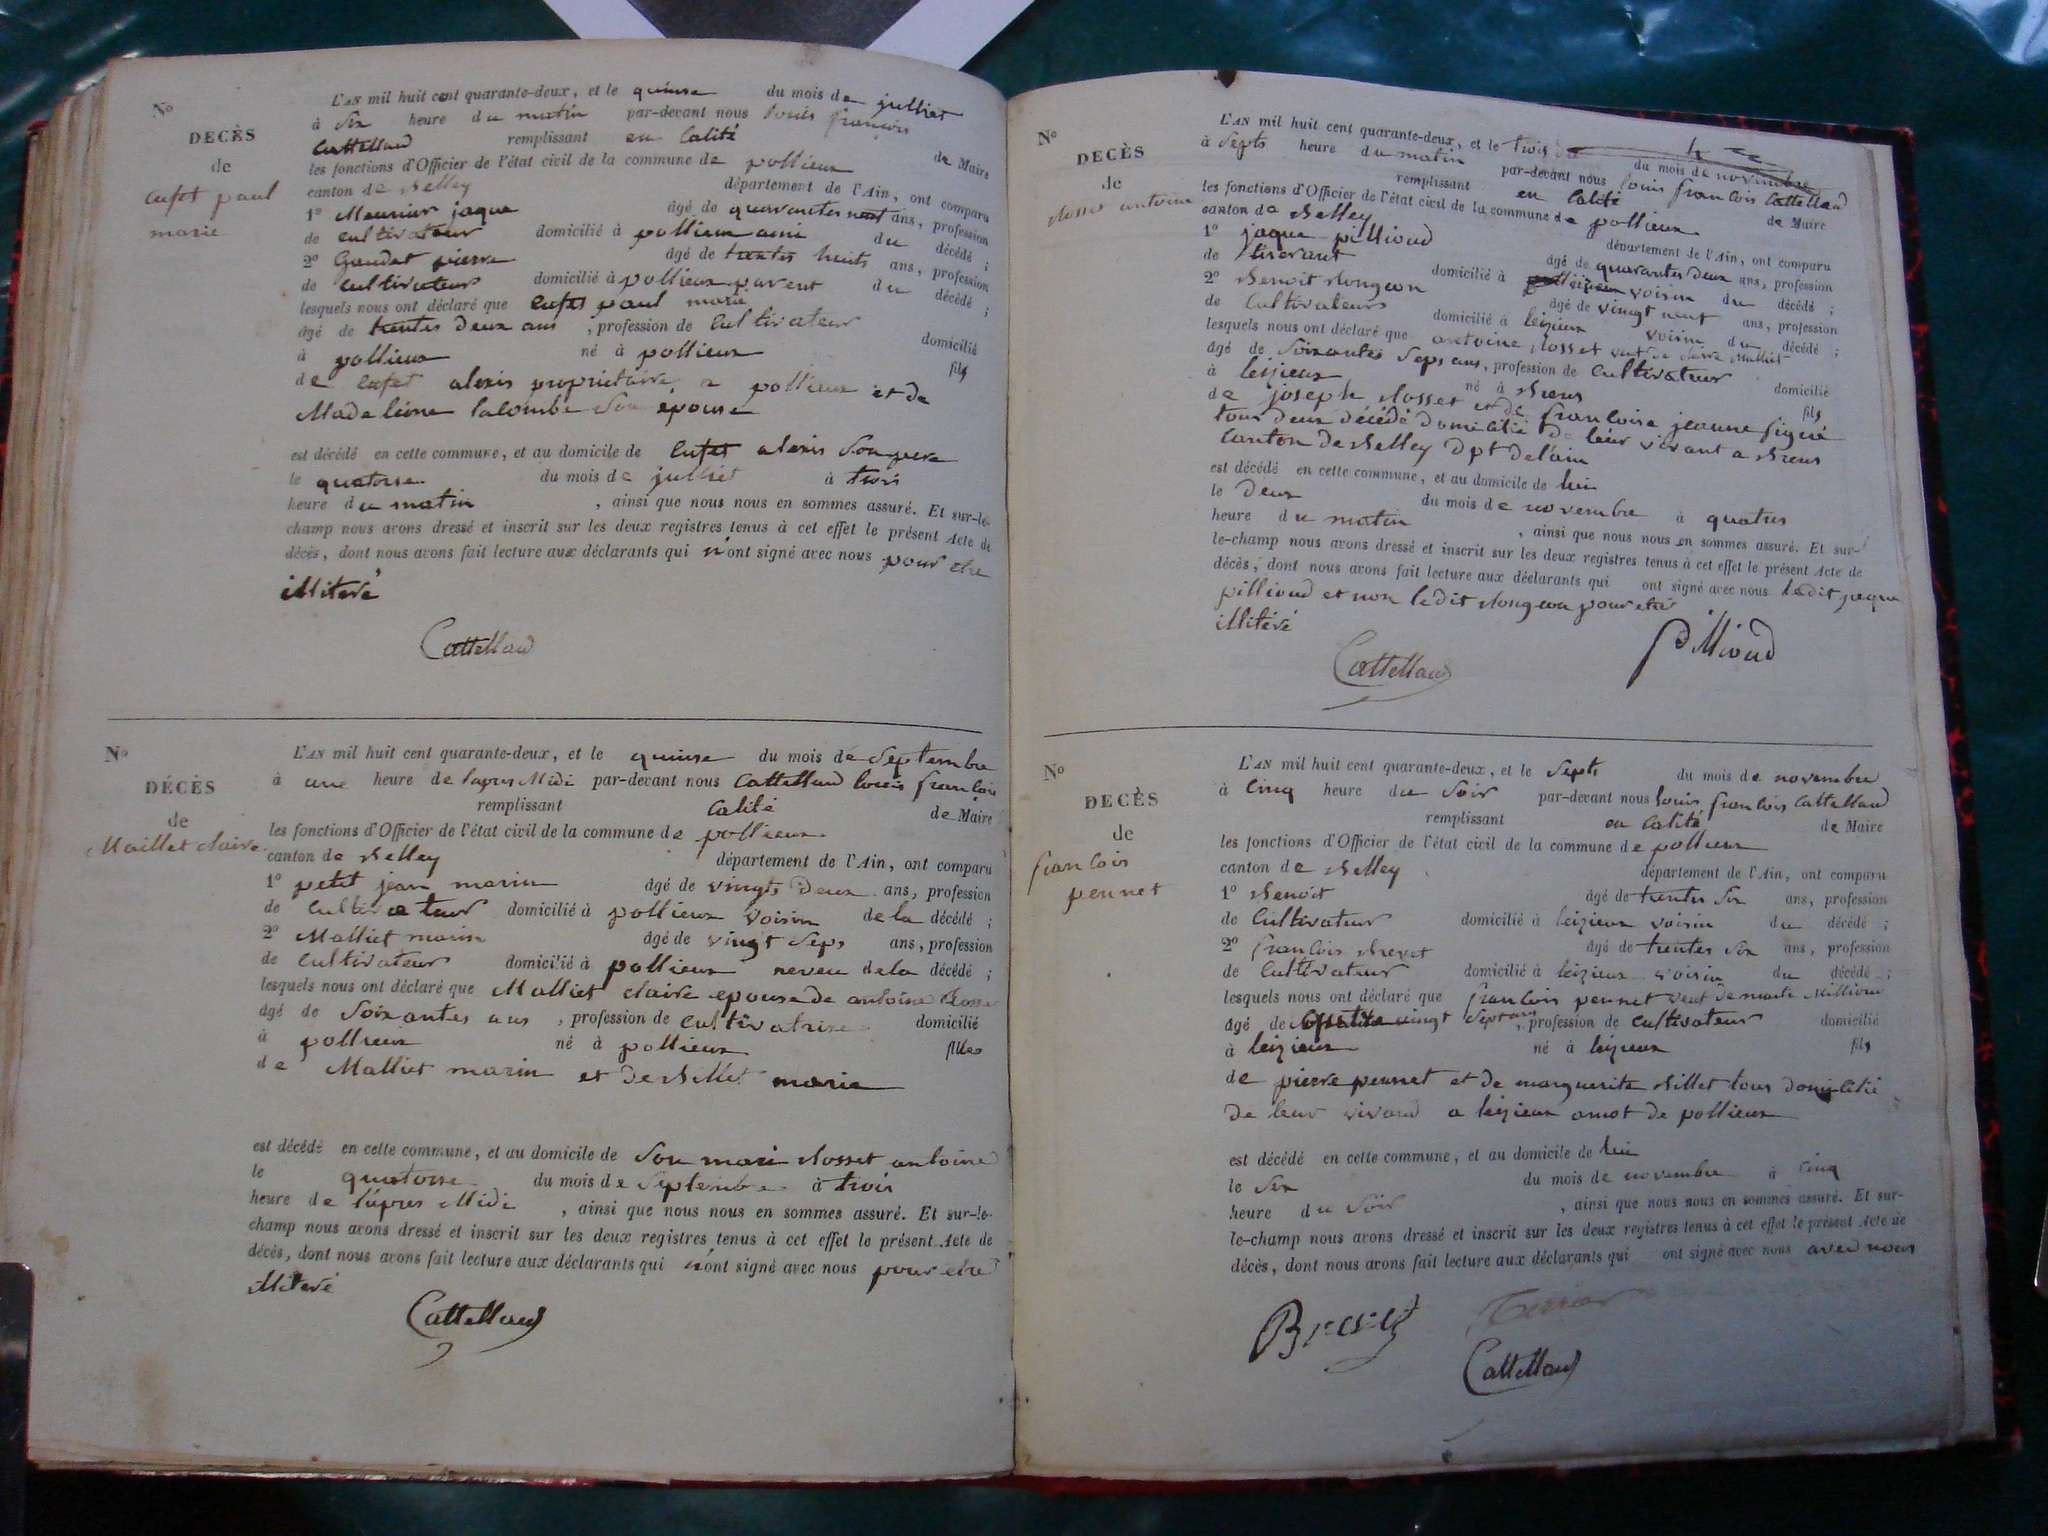 No
DECÈS
de
Cufet paul
marie
L'AN mil huit cent quarante-deux, et le quinse du mois de julliet
à Six heure du matin par-devant nous Louis françois
Cattelland remplissant en Calité de Maire
les fonctions d'Officier de l'état civil de la commune de pollieux
canton de Belley département de l'Ain, ont comparu
1o Meunier jaque âgé de quarantes neuf ans, profession
de Cultivateur domicilié à pollieux ami du décédé ;
2o Gaudet pierre âgé de trentes huits ans, profession
de Cultivateur domicilié à pollieux parent du décédé ;
lesquels nous ont déclaré que Cufet paul marie
âgé de trentes deux ans , profession de Cultivateur domicilié
à pollieux né à pollieux fils
de Cufet alexis propriétaire a pollieux et de
Madeleine lacombe Son epouse
est décédé en cette commune, et au domicile de Cufet alexis Son pere
le quatorse du mois de julliet à trois
heure du matin , ainsi que nous nous en sommes assuré. Et sur-le-
champ nous avons dressé et inscrit sur les deux registres tenus à cet effet le présent Acte de
décès, dont nous avons fait lecture aux déclarants qui n'ont signé avec nous pour etre
illiteré
Cattelland
No
DÉCÈS
de
Maillet claire
L'AN mil huit cent quarante-deux, et le quinse du mois de Septembre
à une heure de l'apres Midi par-devant nous Cattelland louis françois
remplissant Calité de Maire
les fonctions d'Officier de l'état civil de la commune de pollieux
canton de Belley département de l'Ain, ont comparu
1o petit jean marin âgé de vingts deux ans, profession
de Cultivateur domicilié à pollieux voisin de la décédé ;
2o Malliet marin âgé de vingt Seps ans, profession
de Cultivateur domicilié à pollieux neveu de la décédé ;
lesquels nous ont déclaré que Malliet claire epouse de antoine Rosset
âgé de Soixantes ans , profession de Cultivatrise domicilié
à pollieux né à pollieux filles
de Malliet marin et de Billiet marie
est décédé en cette commune, et au domicile de Son mari Rosset antoine
le quatorse du mois de Septembre à trois
heure de l'apres Midi , ainsi que nous nous en sommes assuré. Et sur-le-
champ nous avons dressé et inscrit sur les deux registres tenus à cet effet le présent Acte de
décès, dont nous avons fait lecture aux déclarants qui n'ont signé avec nous pour etre
illiteré
Cattelland
No
DECÈS
de
Rosset antoine
L'AN mil huit cent quarante-deux, et le trois du mois de novembre
à Septs heure du matin par-devant nous louis françois Cattelland
remplissant en Calité de Maire
les fonctions d'Officier de l'état civil de la commune de pollieux
canton de Belley département de l'Ain, ont comparu
1o jaque pillioud âgé de quarantes deux ans, profession
de tiserant domicilié à leizieux voisin du décédé ;
2o Benoit Mongeon âgé de vingt neuf ans, profession
de Cultivateurs domicilié à leizieux voisin du décédé ;
lesquels nous ont déclaré que antoine Rosset veuf de claire Malliet
âgé de Soixantes Seps ans, profession de Cultivateur domicilié
à leizieux né à Brens fils
de joseph Rosset et de françoise jeanne figué
tous deux décédé domicilié de leur vivant a Brens
Canton de Belley dpt de l'ain
est décédé en cette commune, et au domicile de lui
le Deux du mois de novembre à quatres
heure du matin , ainsi que nous nous en sommes assuré. Et sur-
le-champ nous avons dressé et inscrit sur les deux registres tenus à cet effet le présent Acte de
décès, dont nous avons fait lecture aux déclarants qui ont signé avec nous ledit jaque
pillioud et non ledit Mongeon pour etre
illiteré
Cattelland Pillioud
No
DECÈS
de
françois
pennet
L'AN mil huit cent quarante-deux, et le Septs du mois de novembre
à Cinq heure du Soir par-devant nous louis françois Cattelland
remplissant en Calité de Maire
les fonctions d'Officier de l'état civil de la commune de pollieux
canton de Belley département de l'Ain, ont comparu
1o Benoit âgé de trentes Six ans, profession
de Cultivateur domicilié à leizieux voisin du décédé ;
2o françois Brevet âgé de trentes Six ans, profession
de Cultivateur domicilié à leizieux voisin du décédé ;
lesquels nous ont déclaré que françois pennet veuf de marie Millioud
âgé de vingt Sept ans, profession de Cultivateur domicilié
à leizieux né à leizieux fils
de pierre pennet et de marguerite Billet tous domicilié
de leur vivand a leizieux amot de pollieux
est décédé en cette commune, et au domicile de lui
le Six du mois de novembre à Cinq
heure du Soir , ainsi que nous nous en sommes assuré. Et sur-
le-champ nous avons dressé et inscrit sur les deux registres tenus à cet effet le présent Acte de
décès, dont nous avons fait lecture aux déclarants qui ont signé avec nous avec nous
Cattelland